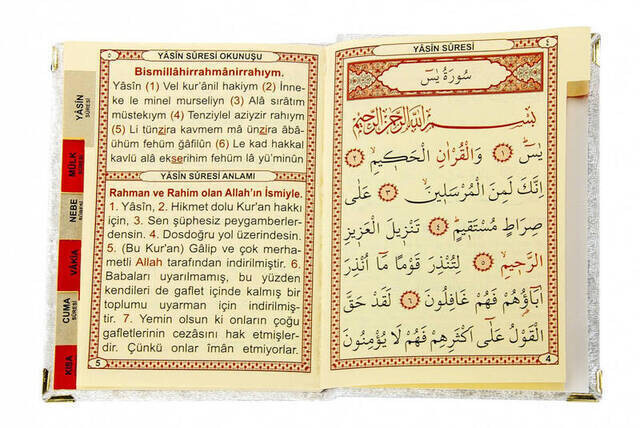 YÂSİN SÛRESİ
٤
سُورَةُ يٰسٓ
بِسْمِ اللهِ الرَّحْمٰنِ الرَّحِيمِ
يٰسٓ ﴿١﴾ وَالْقُرْاٰنِ الْحَكِيمِ ﴿٢﴾
اِنَّكَ لَمِنَ الْمُرْسَلِينَ ﴿٣﴾ عَلٰى
صِرَاطٍ مُسْتَقِيمٍ ﴿٤﴾ تَنْزِيلَ الْعَزِيزِ
الرَّحِيمِ ﴿٥﴾ لِتُنْذِرَ قَوْمًا مَٓا اُنْذِرَ
اٰبَٓاؤُهُمْ فَهُمْ غَافِلُونَ ﴿٦﴾ لَقَدْ حَقَّ
الْقَوْلُ عَلٰٓى اَكْثَرِهِمْ فَهُمْ لَا يُؤْمِنُونَ
4
٥
YÂSİN SÛRESİ OKUNUŞU
Bismillâhirrahmânirrahıym.
Yâsîn (1) Vel kur'ânil hakiym (2) İnne-
ke le minel murseliyn (3) Alâ sırâtım
müstekıym (4) Tenziylel aziyzir rahıym
(5) Li tünzira kavmem mâ ünzira âbâ-
ühüm fehüm ğâfilûn (6) Le kad hakkal
kavlü alâ ekserihim fehüm lâ yü'minûn
YÂSİN SÛRESİ ANLAMI
Rahman ve Rahim olan Allah'ın İsmiyle.
1. Yâsîn, 2. Hikmet dolu Kur'an hakkı
için, 3. Sen şüphesiz peygamberler-
densin. 4. Dosdoğru yol üzerindesin.
5. (Bu Kur'an) Gâlip ve çok merha-
metli Allah tarafından indirilmiştir. 6.
Babaları uyarılmamış, bu yüzden
kendileri de gaflet içinde kalmış bir
toplumu uyarman için indirilmiş-
tir. 7. Yemin olsun ki onların çoğu
gafletlerinin cezâsını hak etmişler-
dir. Çünkü onlar îmân etmiyorlar.
5
YÂSİN
SÛRESİ
MÜLK
SÛRESİ
NEBE
SÛRESİ
VÂKIA
CUMA
SÛRESİ
KISA